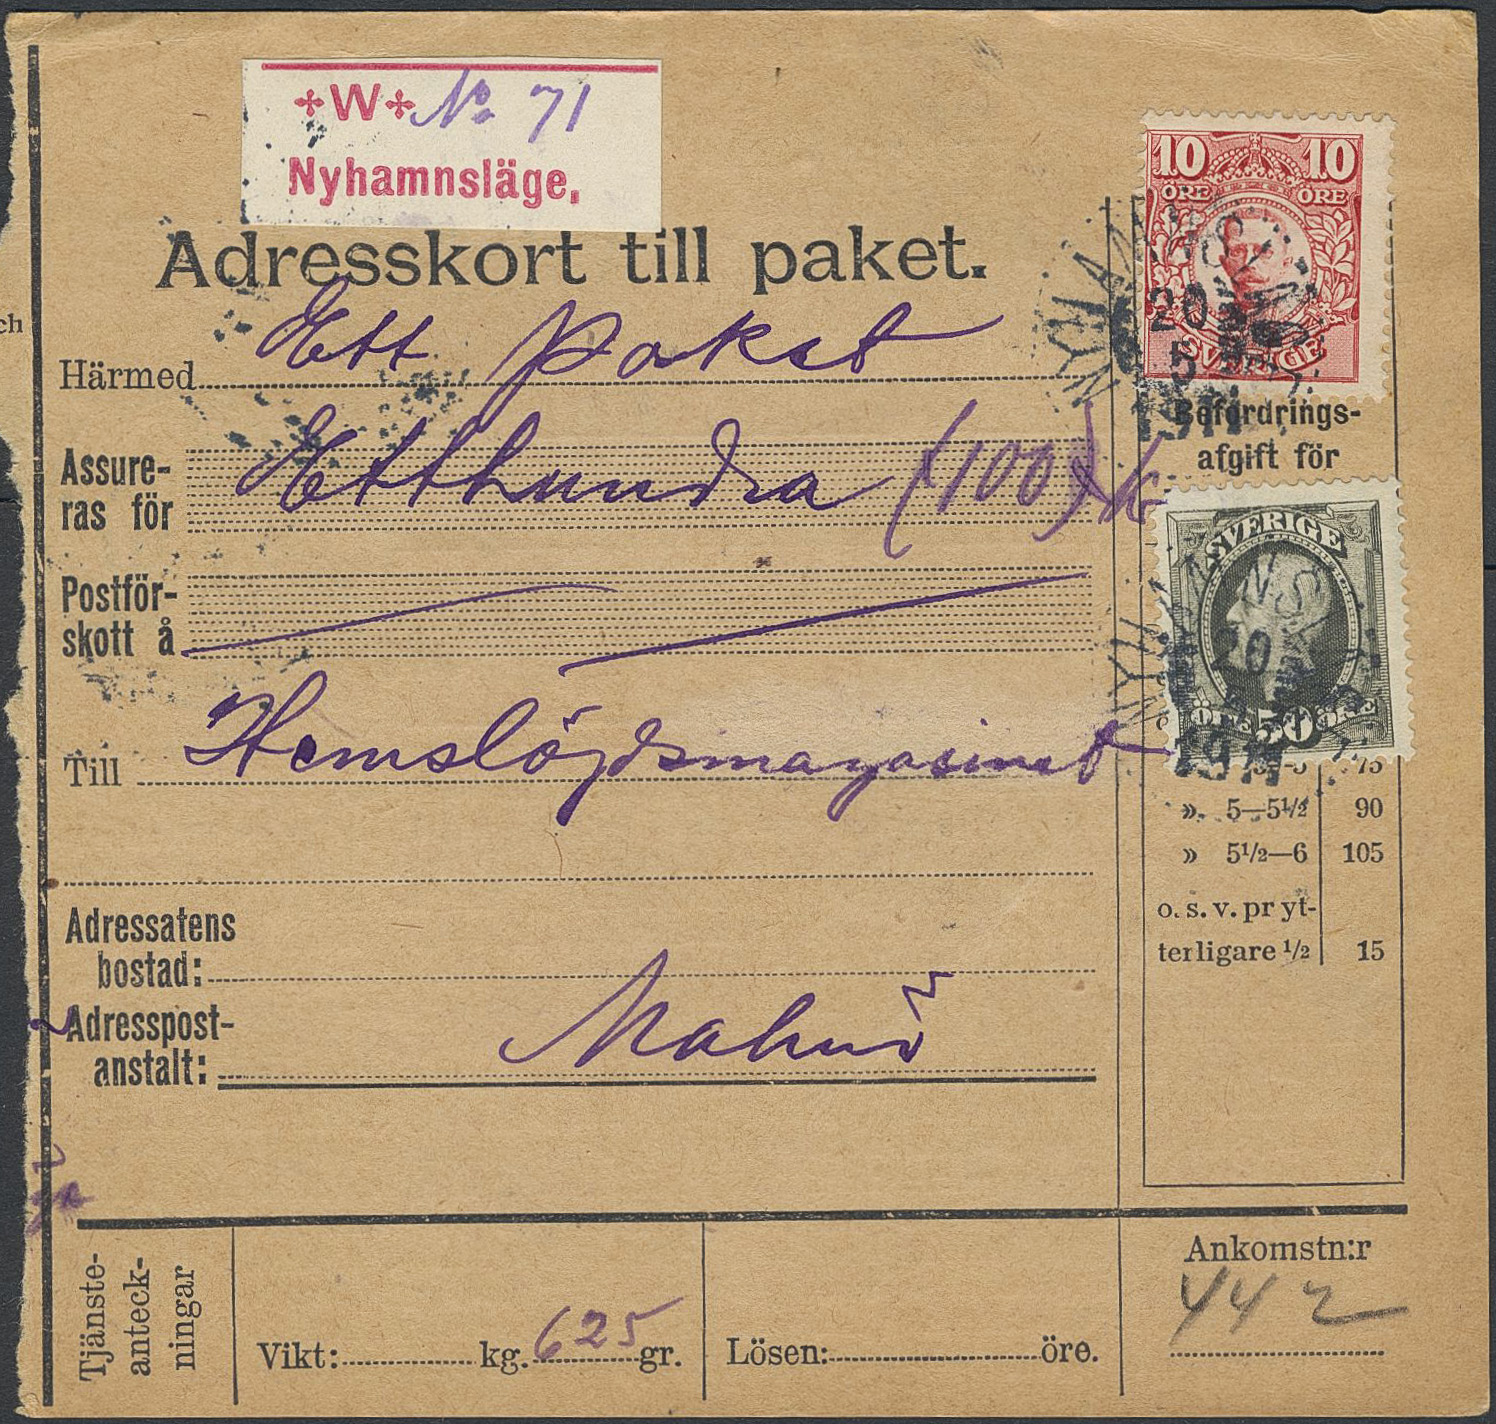 +W+ No 71
Nyhamnsläge.
Adresskort till paket.
Härmed Ett paket
Assure-
ras för Etthundra (100) kr
Postför-
skott å
Till Hemslöjdsmagasinet
Adressatens
bostad:
Adresspost-
anstalt: Malmö
10 10
ÖRE ÖRE
SVERIGE
20
5
1911
Befordrings-
afgift för
SVERIGE
ÖRE 50 ÖRE
20
1911
75
» 5—5½ 90
» 5½—6 105
o. s. v. pr yt-
terligare ½ 15
Tjänste-
anteck-
ningar
Vikt: kg. 625 gr.
Lösen: öre.
Ankomstn:r
442
ch